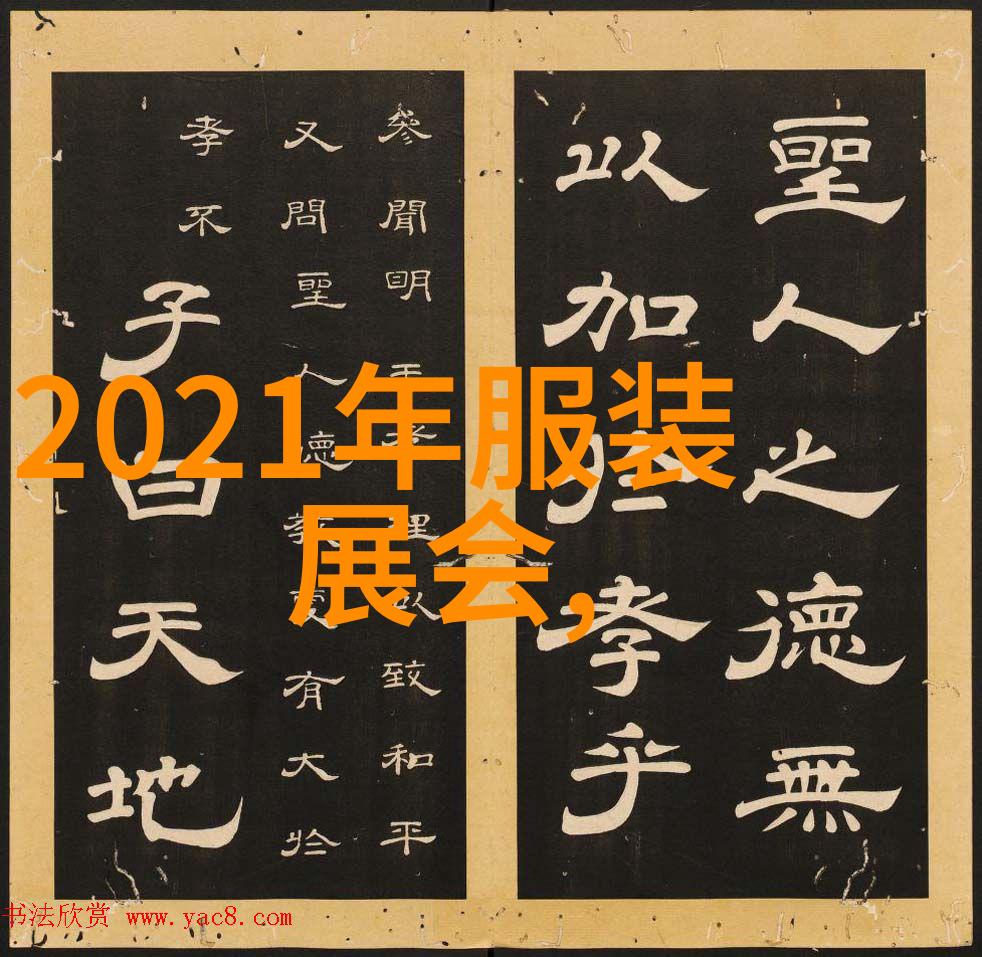 2021年服装
展会,
聖人之德無
以加於孝乎
參聞明王孝理以致和平
又問聖人德教更有大於
孝不
子曰天地
书法欣赏 www.yac8.com